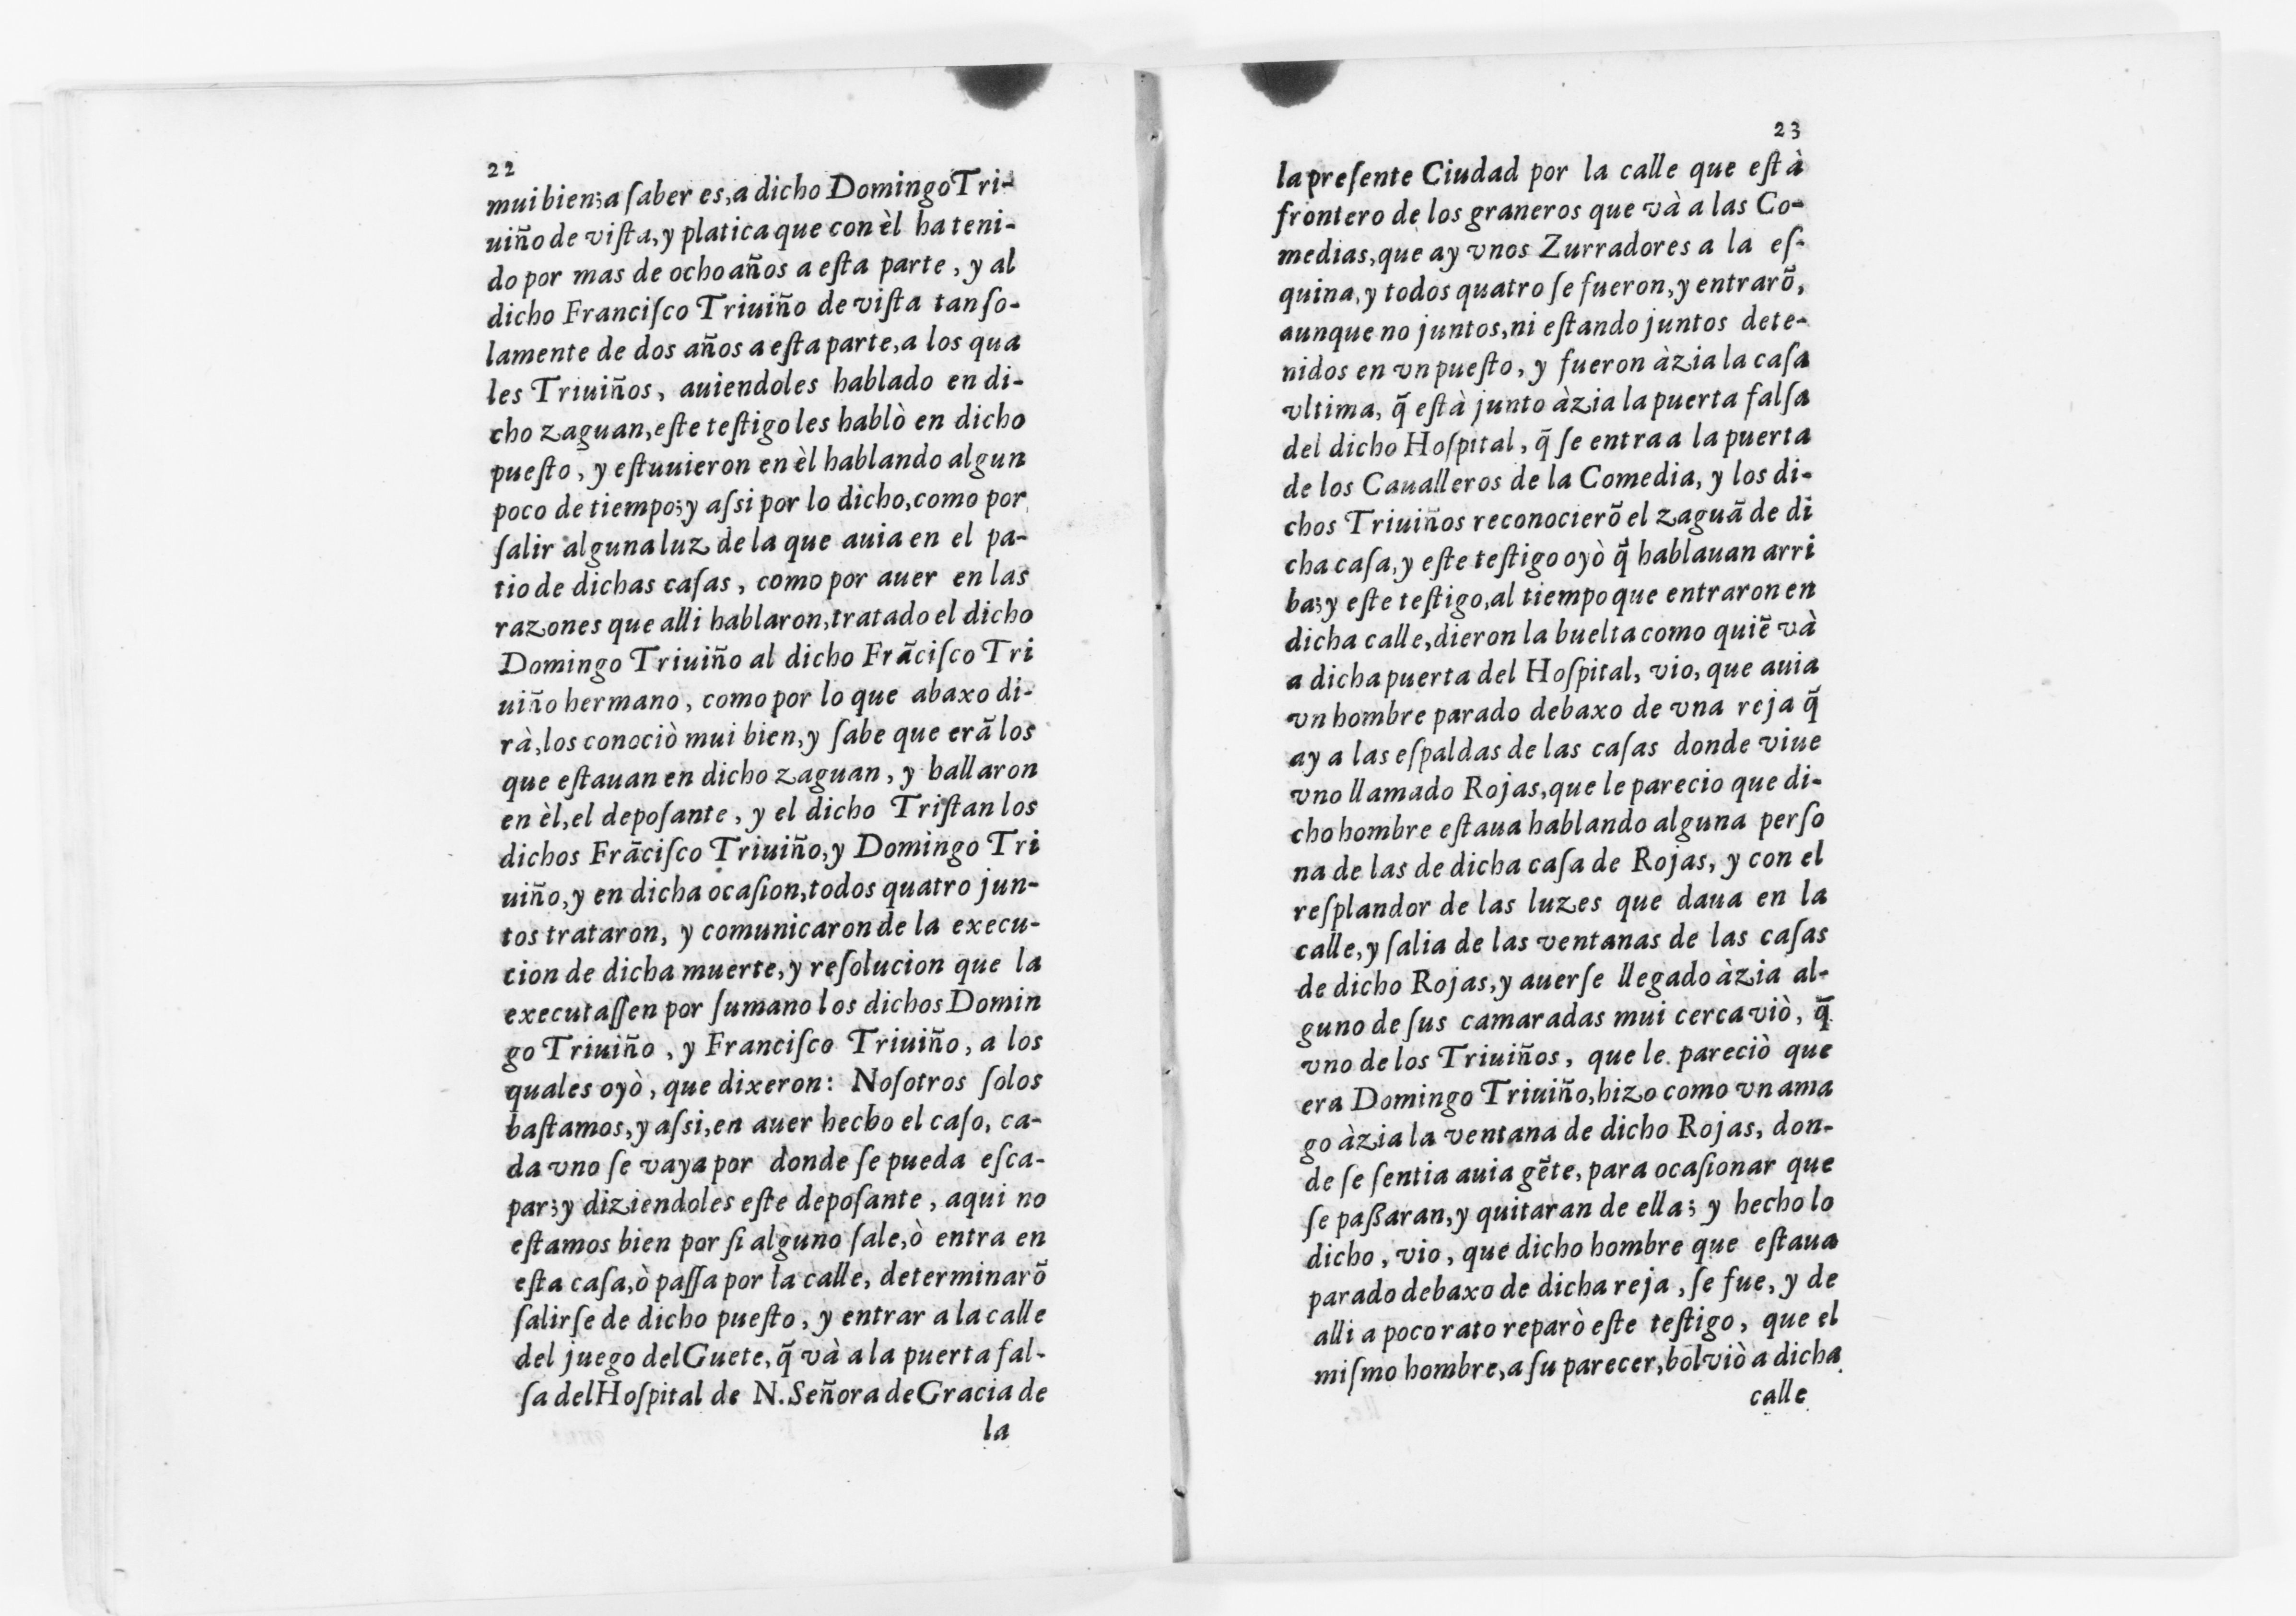 22
mui bien; a ſaber es, a dicho Domingo Tri-
uiño de viſta, y platica que con èl ha teni-
do por mas de ocho años a eſta parte, y al
dicho Franciſco Triuiño de viſta tan ſo-
lamente de dos años a eſta parte, a los qua
les Triuiños, auiendoles hablado en di-
cho zaguan, eſte teſtigo les hablò en dicho
pueſto, y eſtuuieron en èl hablando algun
poco de tiempo; y aſsi por lo dicho, como por
ſalir alguna luz de la que auia en el pa-
tio de dichas caſas, como por auer en las
razones que alli hablaron, tratado el dicho
Domingo Triuiño al dicho Frãciſco Tri
uiño hermano, como por lo que abaxo di-
rà, los conociò mui bien, y ſabe que erã los
que eſtauan en dicho zaguan, y hallaron
en èl, el depoſante, y el dicho Triſtan los
dichos Frãciſco Triuiño, y Domingo Tri
uiño, y en dicha ocaſion, todos quatro jun-
tos trataron, y comunicaron de la execu-
cion de dicha muerte, y reſolucion que la
executaſſen por ſu mano los dichos Domin
go Triuiño, y Franciſco Triuiño, a los
quales oyò, que dixeron: Noſotros ſolos
baſtamos, y aſsi, en auer hecho el caſo, ca-
da vno ſe vaya por donde ſe pueda eſca-
par; y diziendoles eſte depoſante, aqui no
eſtamos bien por ſi alguno ſale, ò entra en
eſta caſa, ò paſſa por la calle, determinarõ
ſalirſe de dicho pueſto, y entrar a la calle
del juego del Guete, q̃ và a la puerta fal-
ſa del Hoſpital de N. Señora de Gracia de
la
23
la preſente Ciudad por la calle que eſtà
frontero de los graneros que và a las Co-
medias, que ay vnos Zurradores a la eſ-
quina, y todos quatro ſe fueron, y entrarõ,
aunque no juntos, ni eſtando juntos dete-
nidos en vn pueſto, y fueron àzia la caſa
vltima, q̃ eſtà junto àzia la puerta falſa
del dicho Hoſpital, q̃ ſe entra a la puerta
de los Caualleros de la Comedia, y los di-
chos Triuiños reconocierõ el zaguã de di
cha caſa, y eſte teſtigo oyò q̃ hablauan arri
ba; y eſte teſtigo, al tiempo que entraron en
dicha calle, dieron la buelta como quiẽ và
a dicha puerta del Hoſpital, vio, que auia
vn hombre parado debaxo de vna reja q̃
ay a las eſpaldas de las caſas donde viue
vno llamado Rojas, que le parecio que di-
cho hombre eſtaua hablando alguna perſo
na de las de dicha caſa de Rojas, y con el
reſplandor de las luzes que daua en la
calle, y ſalia de las ventanas de las caſas
de dicho Rojas, y auerſe llegado àzia al-
guno de ſus camaradas mui cerca viò, q̃
vno de los Triuiños, que le pareciò que
era Domingo Triuiño, hizo como vn ama
go àzia la ventana de dicho Rojas, don-
de ſe ſentia auia gẽte, para ocaſionar que
ſe paßaran, y quitaran de ella; y hecho lo
dicho, vio, que dicho hombre que eſtaua
parado debaxo de dicha reja, ſe fue, y de
alli a poco rato reparò eſte teſtigo, que el
miſmo hombre, a ſu parecer, bolviò a dicha
calle